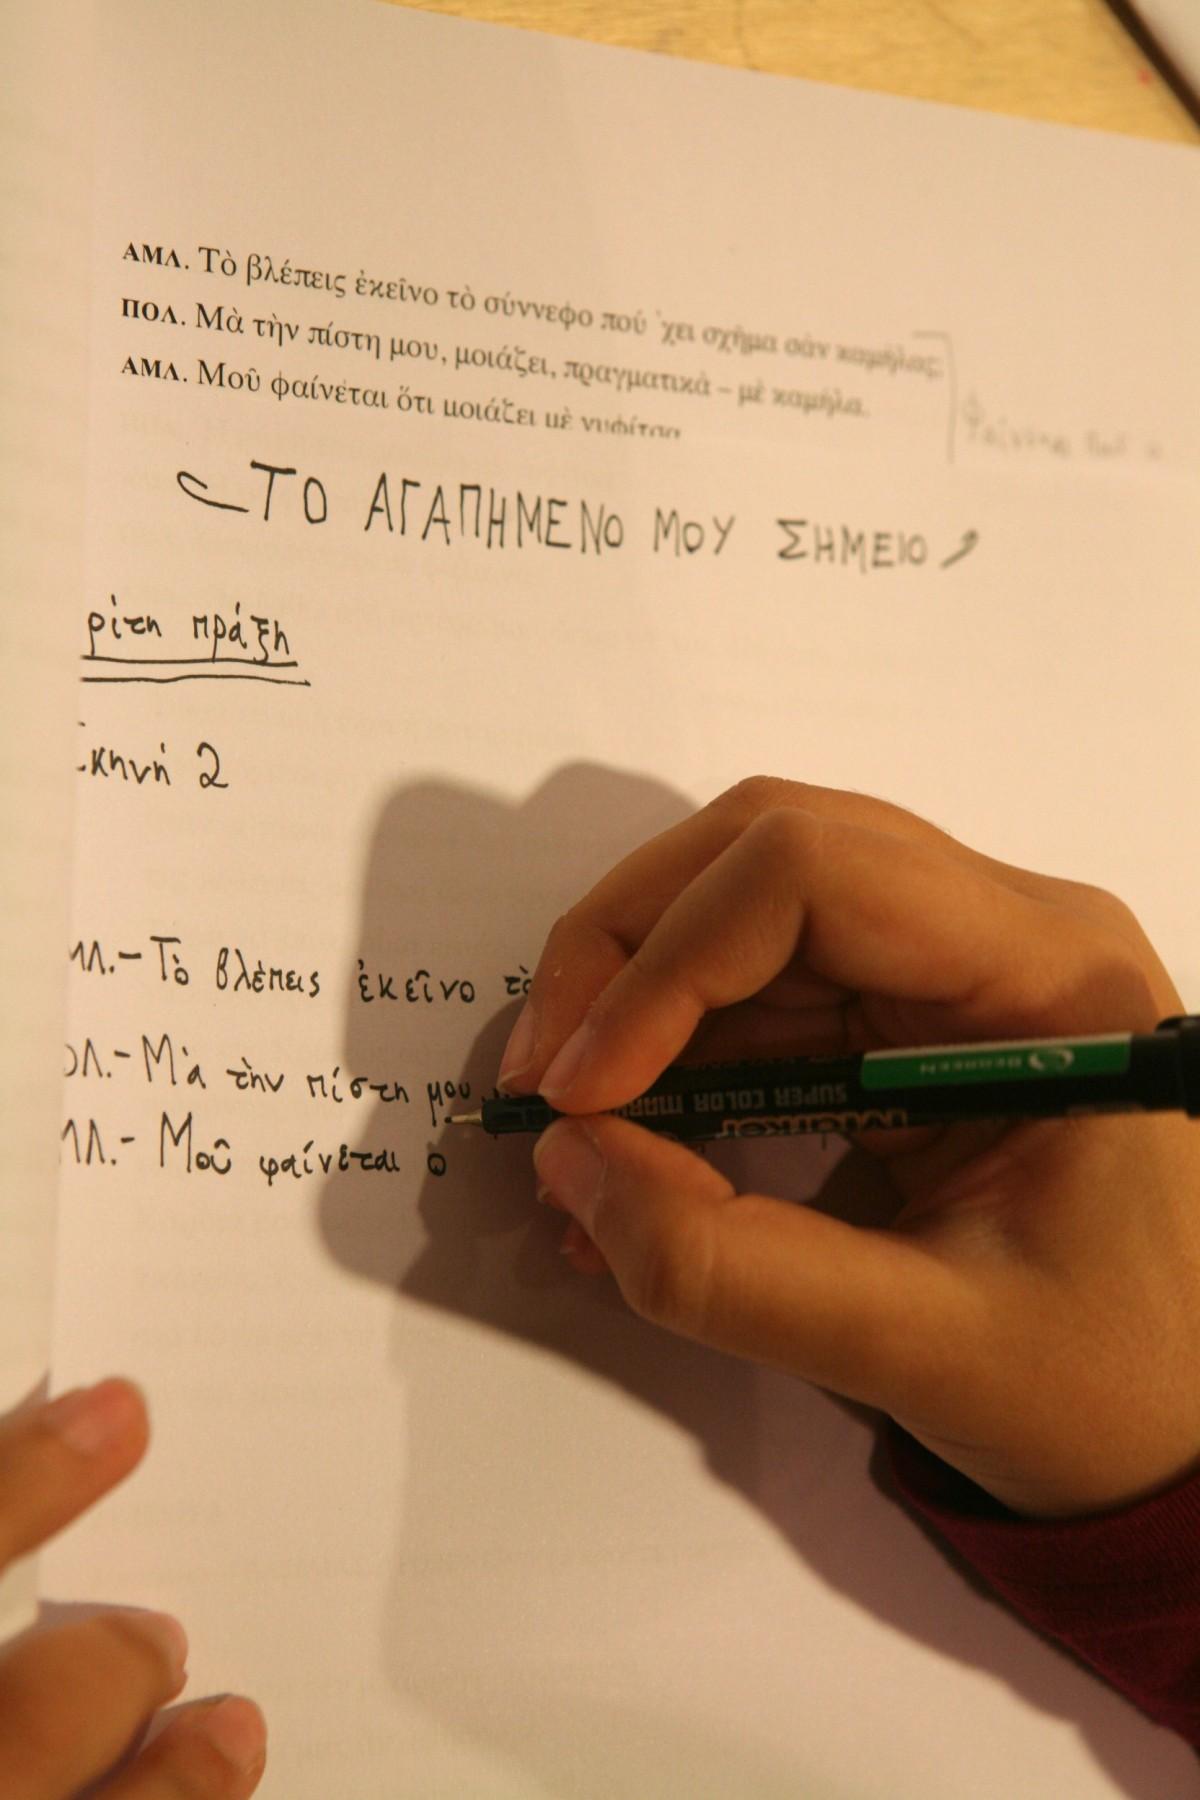 ΑΜΛ. Τὸ βλέπεις ἐκεῖνο τὸ σύννεφο πού ᾿χει σχῆμα σὰν καμήλας;
ΠΟΛ. Μὰ τὴν πίστη μου, μοιάζει, πραγματικὰ – μὲ καμήλα.
ΑΜΛ. Μοῦ φαίνεται ὅτι μοιάζει μὲ νυφίτσα
ΤΟ ΑΓΑΠΗΜΕΝΟ ΜΟΥ ΣΗΜΕΙΟ
ρίτη πράξη
κηνή 2
ΜΛ.- Τὸ βλέπεις ἐκεῖνο τὸ
ΟΛ.- Μὰ τὴν πίστη μου
ΜΛ.- Μοῦ φαίνεται ὅ
SUPER COLOR MARKER
Marker
DEGREEN